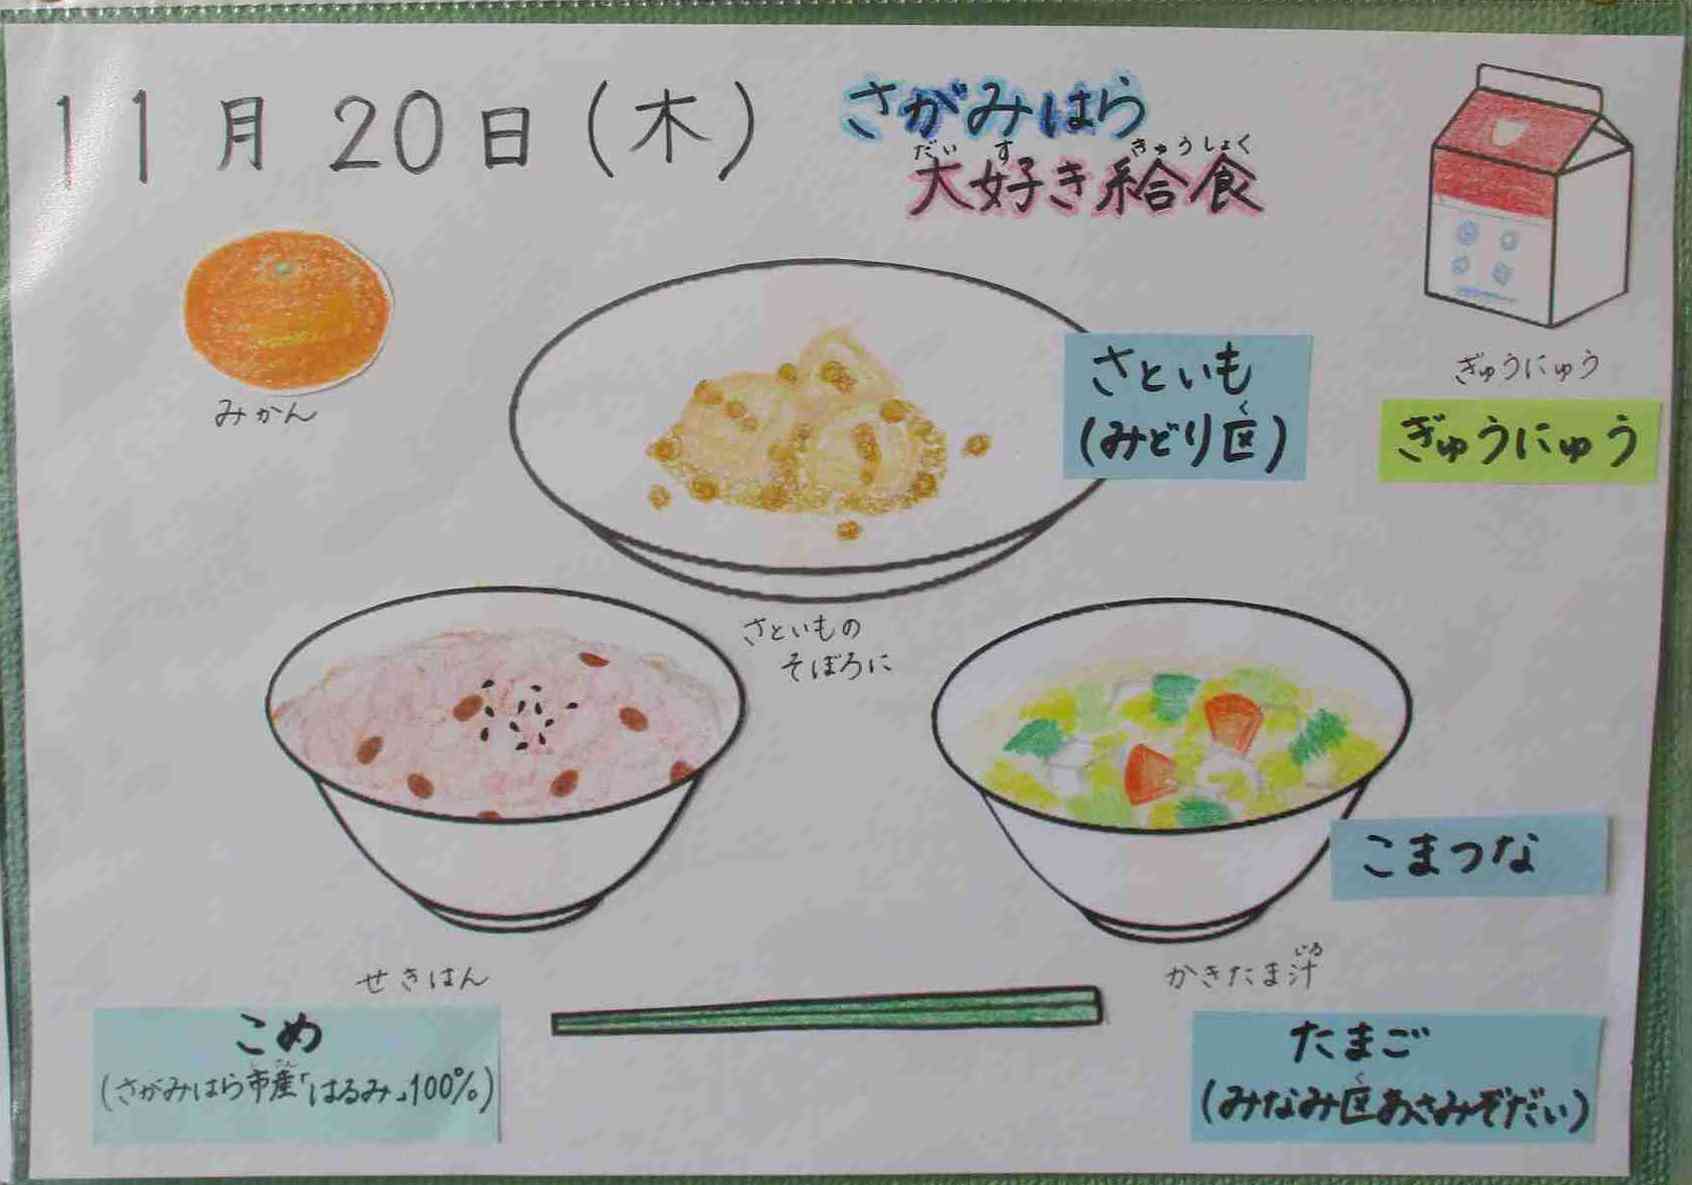 11月20日(木)
さがみはら
だいすきゅうしょく
大好き給食
みかん
さといも
く
(みどり区)
ぎゅうにゅう
ぎゅうにゅう
さといもの
そぼろに
こまつな
せきはん
じる
かきたま汁
こめ
しさん
(さがみはら市産「はるみ」100%)
たまご
く
(みなみ区あさみぞだい)